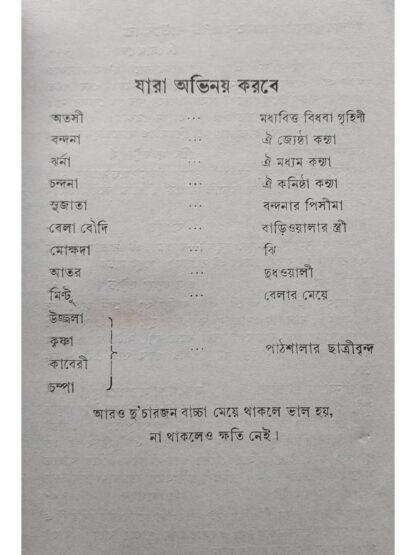 যারা অভিনয় করবে
অতসী ... মধ্যবিত্ত বিধবা গৃহিণী
বন্দনা ... ঐ জ্যেষ্ঠা কন্যা
ঝর্না ... ঐ মধ্যম কন্যা
চন্দনা ... ঐ কনিষ্ঠা কন্যা
সুজাতা ... বন্দনার পিসীমা
বেলা বৌদি ... বাড়িওয়ালার স্ত্রী
মোক্ষদা ... ঝি
আতর ... দুধওয়ালী
মিন্টু ... বেলার মেয়ে
উজ্জ্বলা
কৃষ্ণা
কাবেরী
চম্পা
... পাঠশালার ছাত্রীবৃন্দ
আরও দু'চারজন বাচ্চা মেয়ে থাকলে ভাল হয়,
না থাকলেও ক্ষতি নেই।